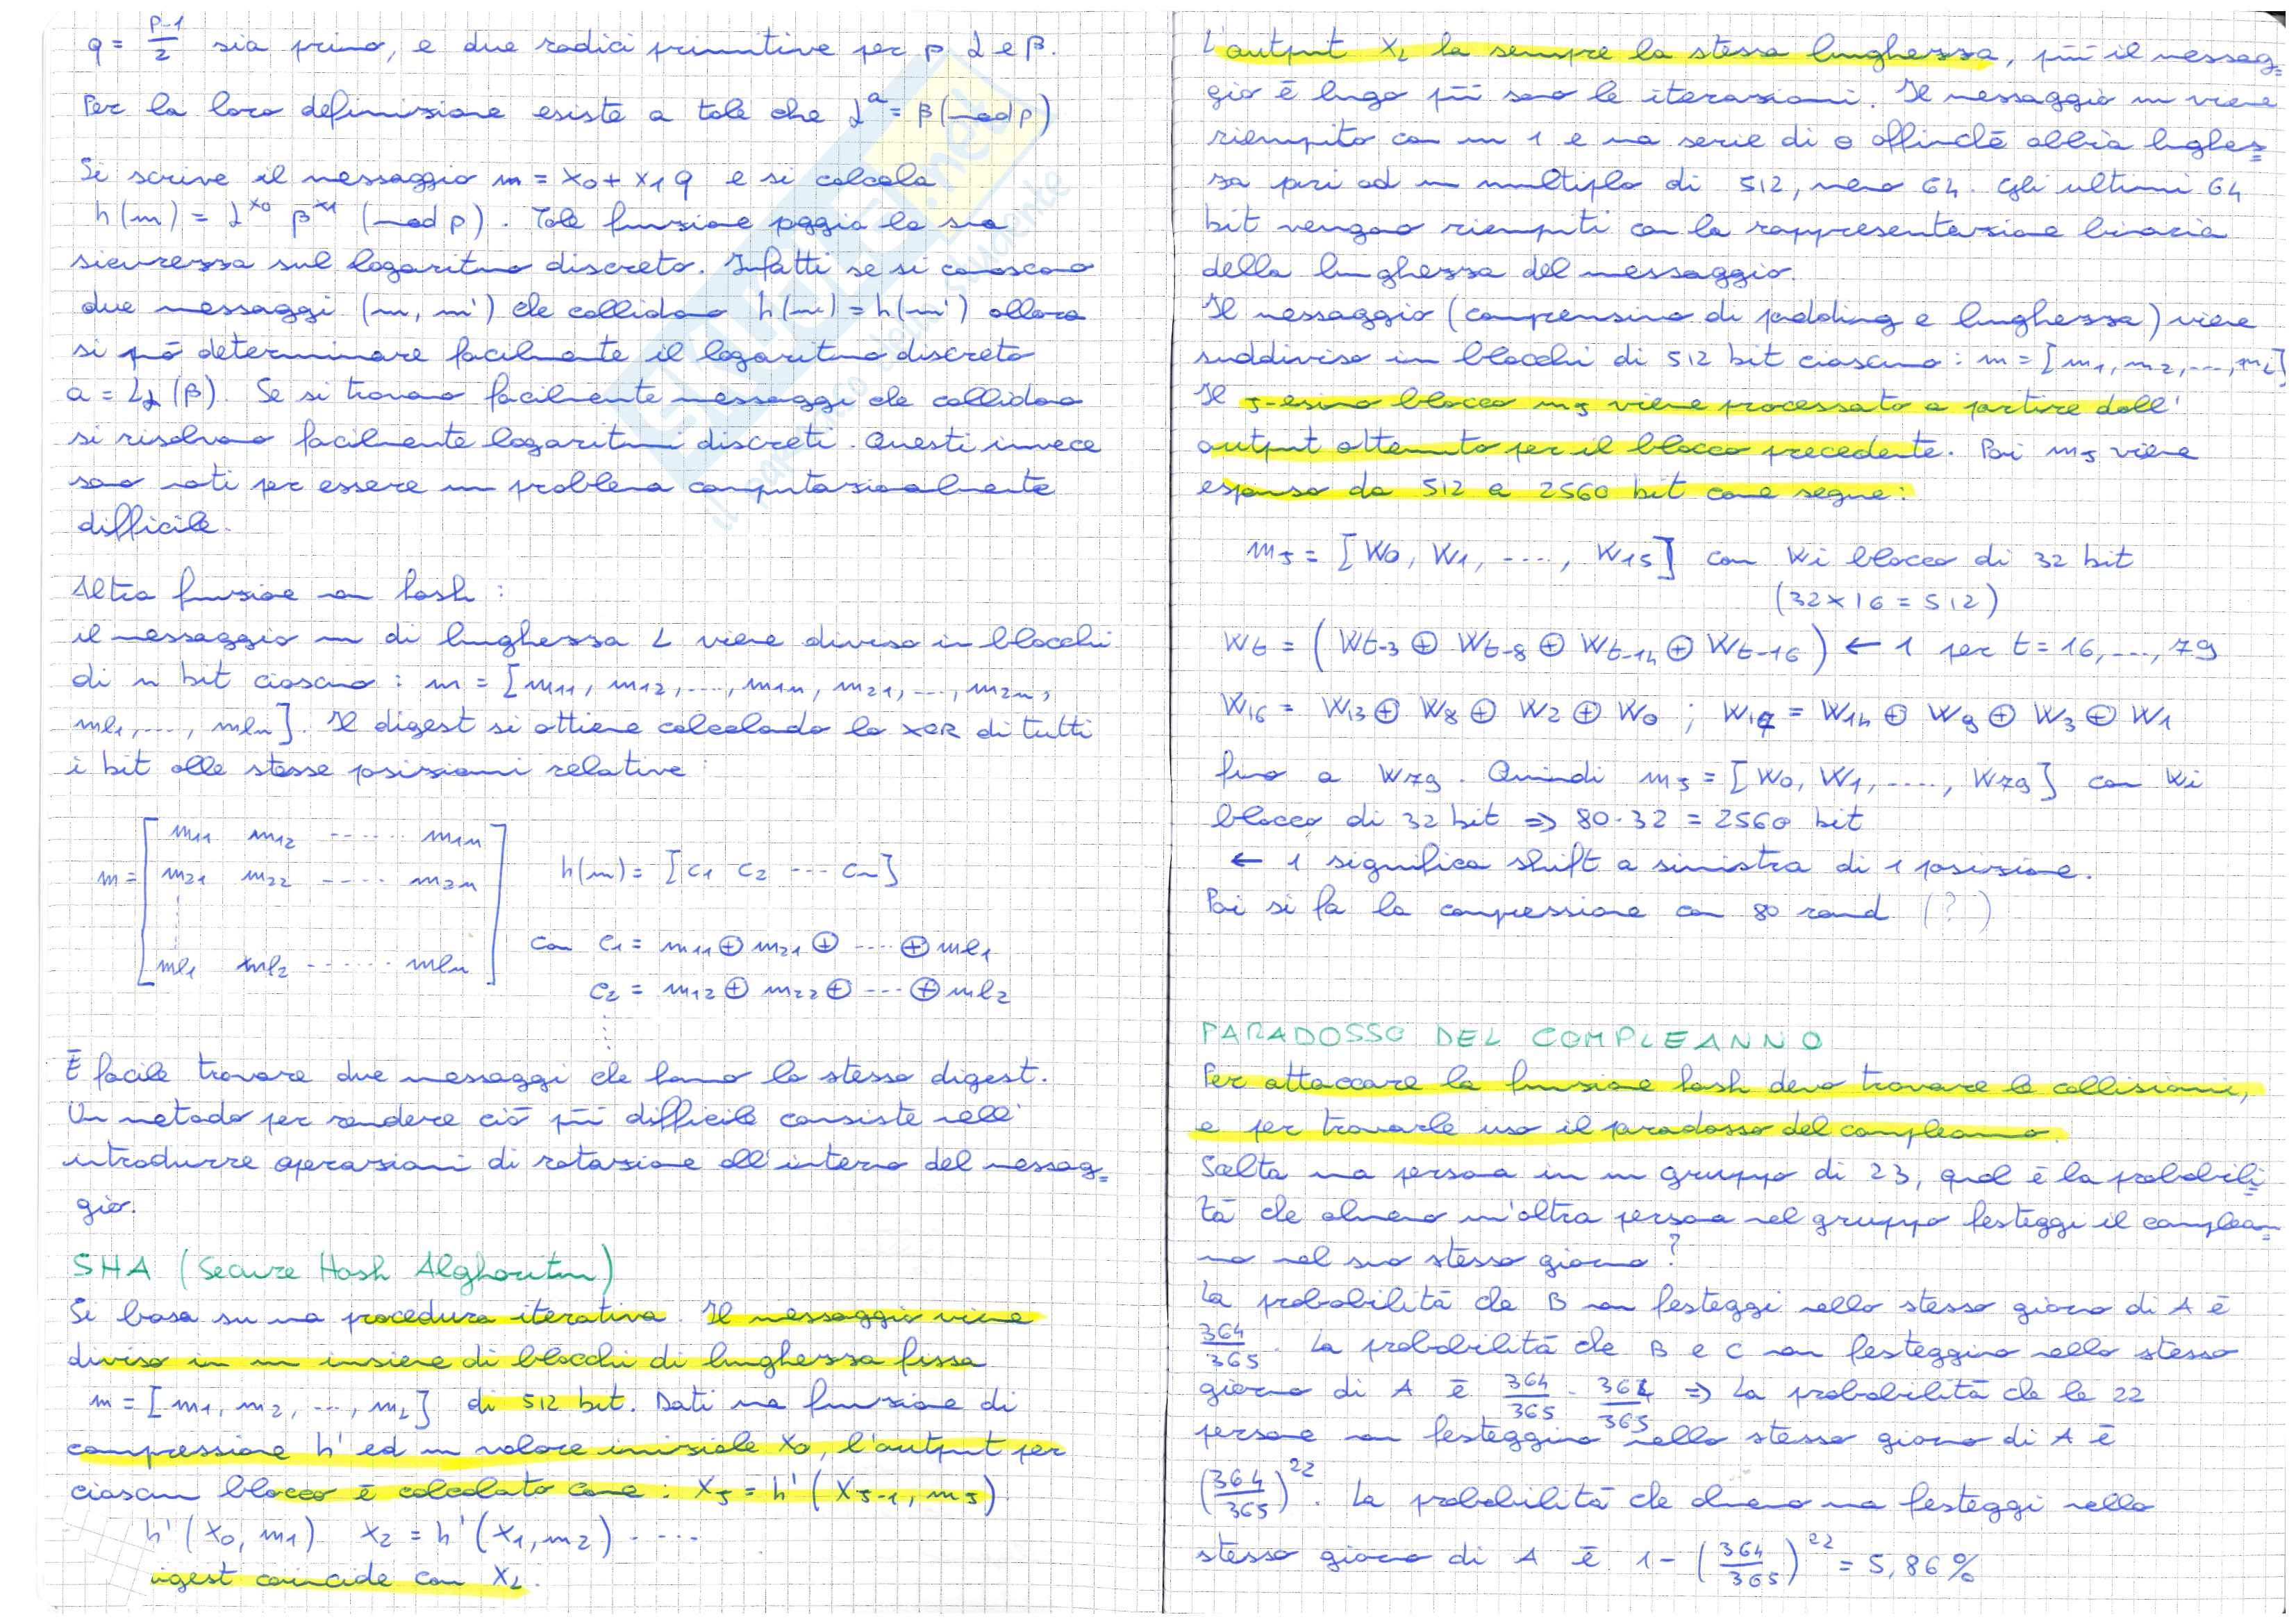 q = p-1/2 sia primo, e due radici primitive per p α e β.
Per la loro definizione esiste a tale che α^a = β (mod p)
Si scrive il messaggio m = x0 + x1 q e si calcola
h(m) = α^x0 β^x1 (mod p). Tale funzione poggia la sua
sicurezza sul logaritmo discreto. Infatti se si conoscono
due messaggi (m, m') che collidono h(m) = h(m') allora
si può determinare facilmente il logaritmo discreto
a = Lα(β). Se si trovano facilmente messaggi che collidono
si risolvono facilmente logaritmi discreti. Questi invece
sono noti per essere un problema computazionalmente
difficile.
Altra funzione non hash :
il messaggio m di lunghezza L viene diviso in blocchi
di n bit ciascuno : m = [m11, m12, ..., m1n, m21, ..., m2n,
ml1, ..., mln]. Il digest si ottiene calcolando lo XOR di tutti
i bit alle stesse posizioni relative:
m11 m12 ...... m1n
m = m21 m22 ...... m2n h(m) = [c1 c2 ... cn]
ml1 ml2 ...... mln con c1 = m11 ⊕ m21 ⊕ ... ⊕ ml1
c2 = m12 ⊕ m22 ⊕ ... ⊕ ml2
È facile trovare due messaggi che hanno lo stesso digest.
Un metodo per rendere ciò più difficile consiste nell'
introdurre operazioni di rotazione all'interno del messag=
gio.
SHA (Secure Hash Alghoritm)
Si basa su una procedura iterativa. Il messaggio viene
diviso in un insieme di blocchi di lunghezza fissa
m = [m1, m2, ..., mL] di 512 bit. Dati una funzione di
compressione h' ed un valore iniziale X0, l'output per
ciascun blocco è calcolato come : Xj = h' (Xj-1, mj)
h' (X0, m1) X2 = h' (X1, m2) ....
igest coincide con XL.
L'output XL ha sempre la stessa lunghezza, più il messag=
gio è lungo più sono le iterazioni. Il messaggio m viene
riempito con un 1 e una serie di 0 affinché abbia lunghez=
za pari ad un multiplo di 512, meno 64. Gli ultimi 64
bit vengono riempiti con la rappresentazione binaria
della lunghezza del messaggio.
Il messaggio (comprensivo di padding e lunghezza) viene
suddiviso in blocchi di 512 bit ciascuno : m = [m1, m2, ..., mL]
Il j-esimo blocco mj viene processato a partire dall'
output ottenuto per il blocco precedente. Poi mj viene
espanso da 512 a 2560 bit come segue:
mj = [W0, W1, ...., W15] con Wi blocco di 32 bit
(32×16 = 512)
Wt = (Wt-3 ⊕ Wt-8 ⊕ Wt-14 ⊕ Wt-16) ← 1 per t = 16, ..., 79
W16 = W13 ⊕ W8 ⊕ W2 ⊕ W0 ; W17 = W14 ⊕ W9 ⊕ W3 ⊕ W1
fino a W79. Quindi mj = [W0, W1, ...., W79] con Wi
blocco di 32 bit => 80·32 = 2560 bit
← 1 significa shift a sinistra di 1 posizione.
Poi si fa la compressione con 80 round (?)
PARADOSSO DEL COMPLEANNO
Per attaccare la funzione hash devo trovare le collisioni,
e per trovarle uso il paradosso del compleanno.
Scelta una persona in un gruppo di 23, qual è la probabili=
tà che almeno un'altra persona nel gruppo festeggi il complean=
no nel suo stesso giorno?
La probabilità che B non festeggi nello stesso giorno di A è
364/365. La probabilità che B e C non festeggino nello stesso
giorno di A è 364/365 · 364/365 => La probabilità che le 22
persone non festeggino nello stesso giorno di A è
(364/365)^22. La probabilità che almeno una festeggi nello
stesso giorno di A è 1-(364/365)^22 = 5,86%